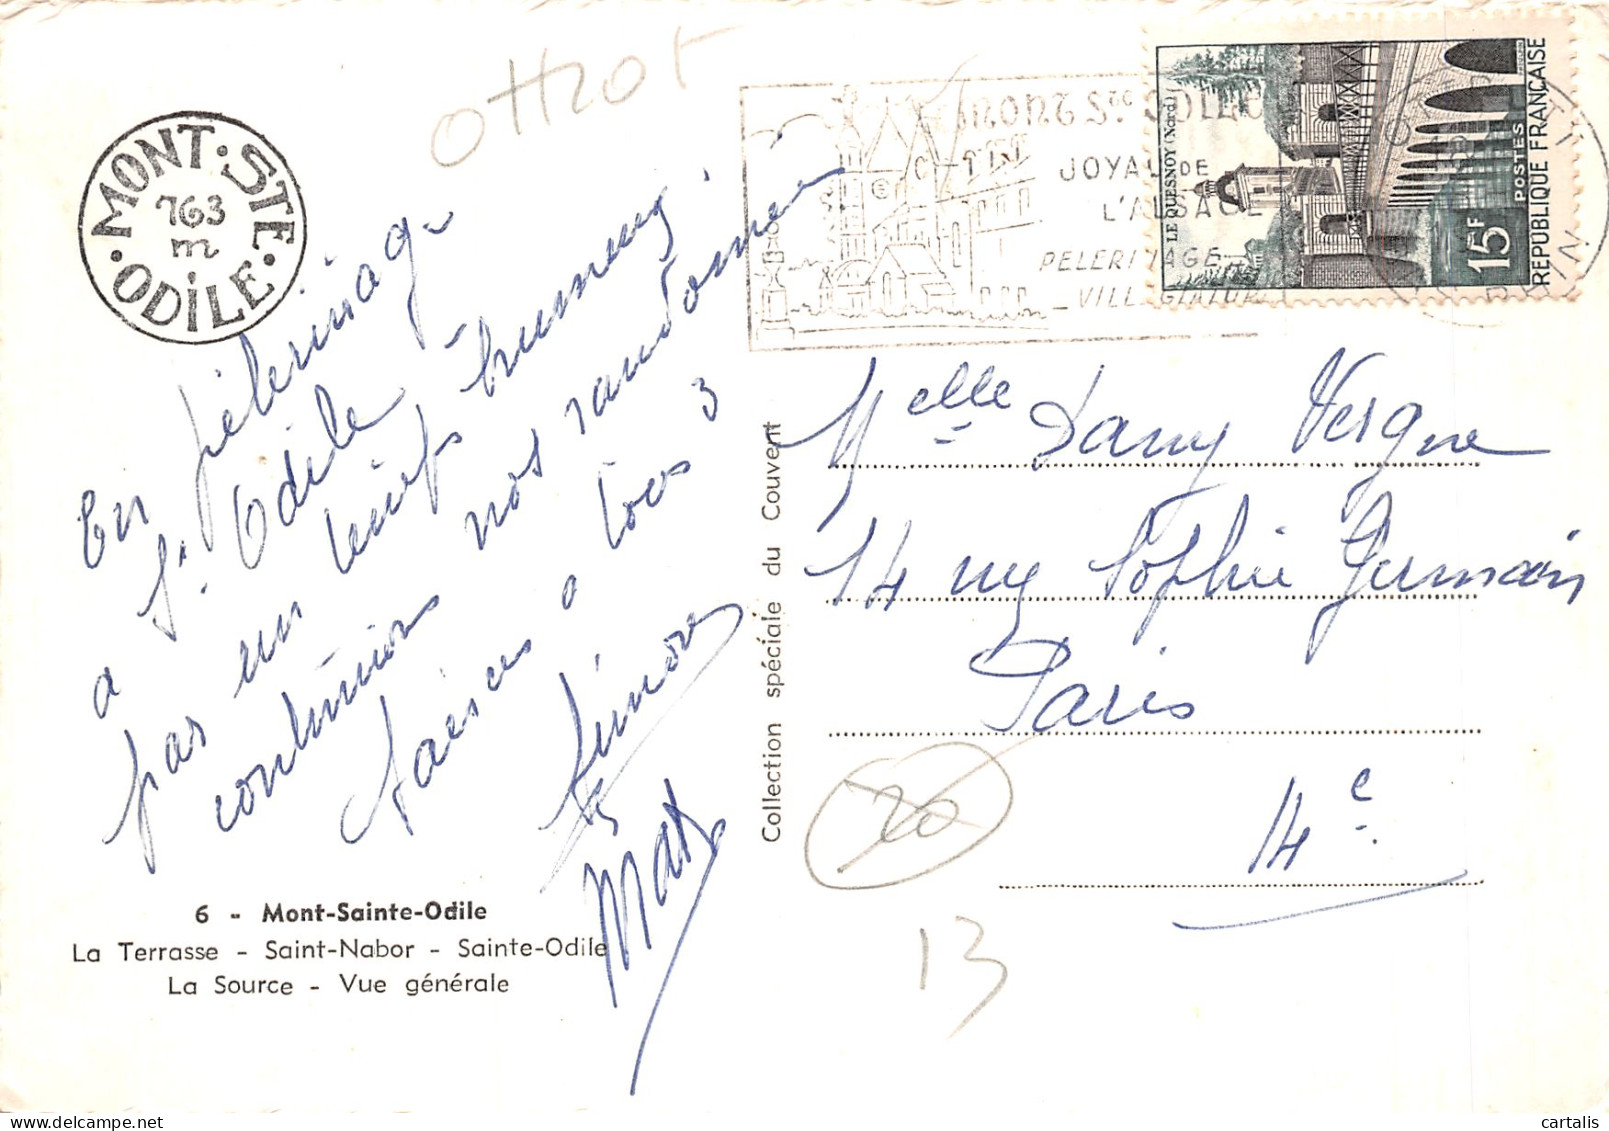 ottrot
MONT·STE·ODILE·
763
m
MONT Ste ODILE
JOYAU DE
L'ALSACE
PELERINAGE
VILLEGIATURE
LE QUESNOY (Nord)
15F
POSTES
REPUBLIQUE FRANÇAISE
En pélerinage
a Ste Odile
pas un
continuons nos randonnée
baises a tous 3
Max
Melle Dany Vergne
14 rue Sophie Germain
Paris
14e
Collection spéciale du Couvent
20
13
6 - Mont-Sainte-Odile
La Terrasse - Saint-Nabor - Sainte-Odile
La Source - Vue générale